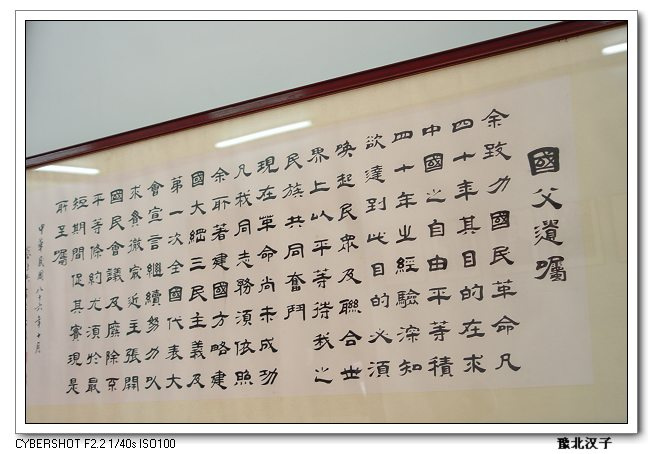 國父遺囑
余致力國民革命凡
四十年其目的在求
中國之自由平等積
四十年之經驗深知
欲達到此目的必須
喚起民眾及聯合世
界上以平等待我之
民族共同奮鬥
現在革命尚未成功
凡我同志務須依照
余所著建國方略建
國大綱三民主義及
第一次全國代表大
會宣言繼續努力以
求貫徹最近主張開
國民會議及廢除不
平等條約尤須於最
短期間促其實現是
所至囑
中華民國八十六年十月
CYBERSHOT F2.2 1/40s ISO100
豫北汉子